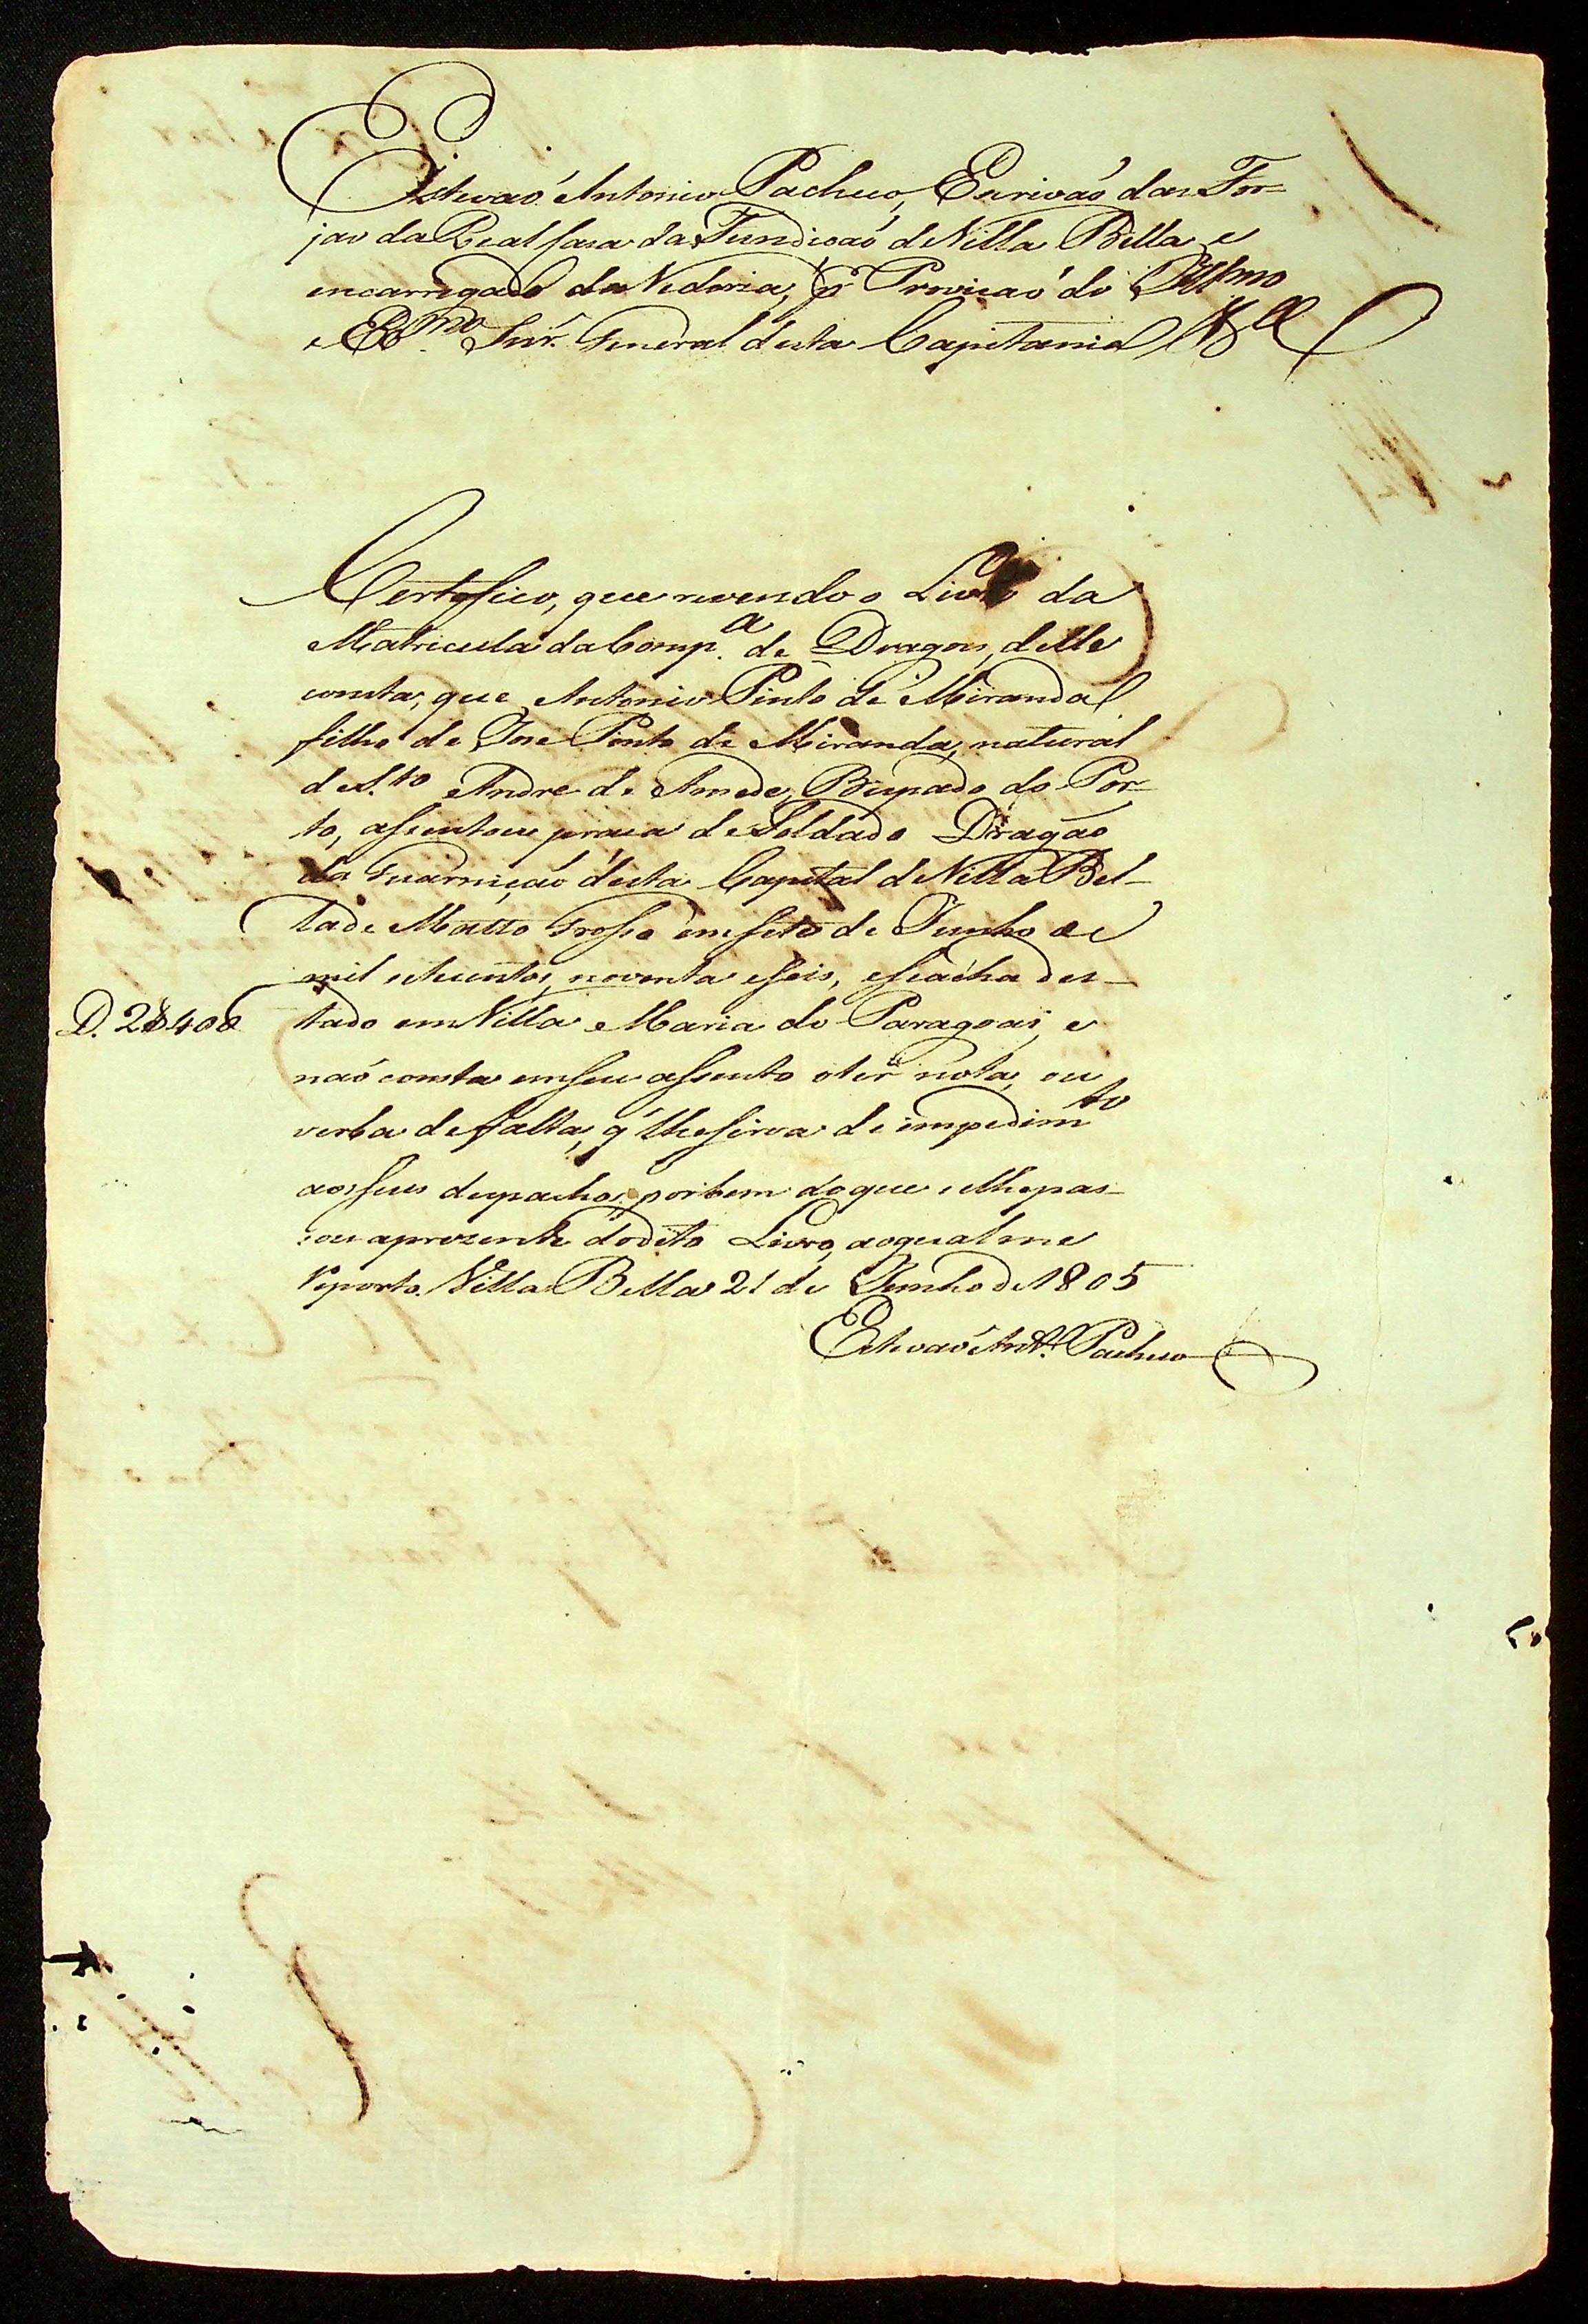 Estevaõ Antonio Pacheco, Escrivaõ das For=
jas da Real Casa da Fundicaõ de Villa Bella e
encarregado da Vedoria, p.r Provicaõ do Illmo
e Exmo Snr. General desta Capitania &a
Certefico, que revendo o Livro da
Matricula da Comp.a de Dragoes, delle
consta, que Antonio Pinto de Miranda
filho de Jose Pinto de Miranda, natural
de S.to Andre de Ansede, Bispado do Por-
to, assentou praca de Soldado Dragaõ
da Guarniçaõ desta Capital de Villa Bel-
la de Matto Grosso em sete de Junho de
mil setecentos, noventa e seis, e se acha des-
D. 2$400 tado em Villa Maria do Paragoai, e
naõ consta em seu assento o ter nota, ou
verba de falta, q' lhe sirva de impedimto
aos seus despachos, por bem do que se lhe pas-
sou a prezente do dito Livro, ao qual me
reporto. Villa Bella 21 de Junho de 1805
Estevaõ Ant.o Pacheco